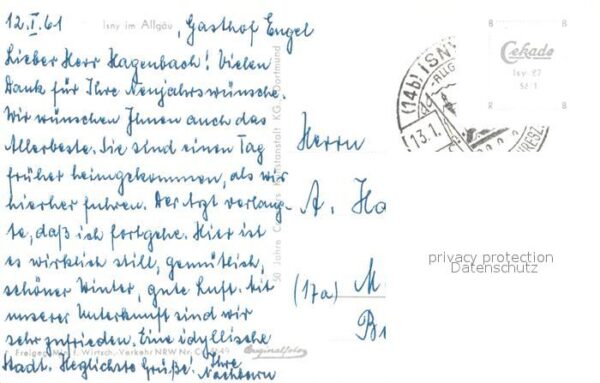 12.I.61 Isny im Allgäu, Gasthof Engel
Lieber Herr Hagenbach! Vielen
Dank für Ihre Neujahrswünsche.
Wir wünschen Ihnen auch das
Allerbeste. Sie sind einen Tag
früher heimgekommen, als wir
hierher fuhren. Der Arzt verlang-
te, daß ich fortgehe. Hier ist
es wirklich still, gemütlich,
schöner Winter, gute Luft. Mit
unserer Unterkunft sind wir
sehr zufrieden. Eine idyllische
Freigeg. Min. f. Wirtsch. Verkehr NRW Nr.
Originalfoto
Stadt. Herzlichste Grüße! Ihre
Nachbarn
50 Jahre
Kunstanstalt KG Dortmund
Herrn
A. Ha
(17a) M
(14b) ISN
ALLG
13.1.
Cekade
Isy 87
privacy protection
Datenschutz